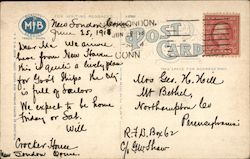 New London Conn
June 25, 1918
CONN
POST CARD
Dear Mr We came
here from New Haven
this is quite a lively place
for Gov't Ships the city
full of Sailors
We expect to be home
Friday or Sat.
Will
Crocker House
New London Conn.
Mrs Geo. H. Hill
Mt Bethel,
Northampton Co
Pennsylvania
R.F.D. Box 62
C/o GW Shaw